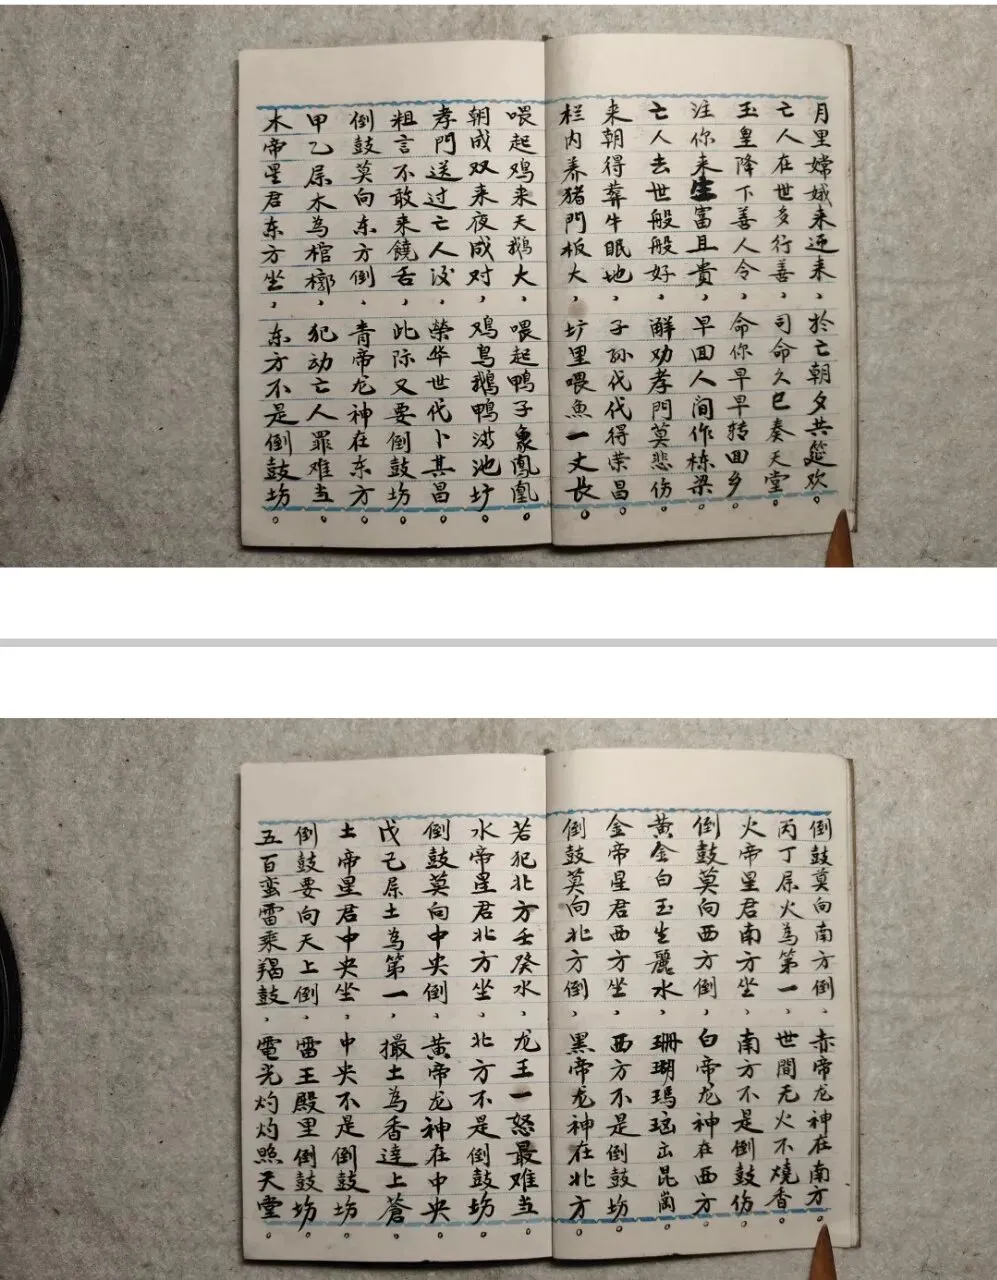 月里嫦娥来迎来，於亡朝夕共筵欢。
亡人在世多行善，司命久已奏天堂。
玉皇降下善人令，命你早早转回乡。
注你来生富且贵，早回人间作栋梁。
亡人去世般般好，解劝孝門莫悲伤。
来朝得葬牛眠地，子孙代代得荣昌。
栏内养猪門板大，圢里喂魚一丈長。
喂起鸡来天鹅大，喂起鸭子象鳳凰。
朝成双来夜成对，鸡鳥鹅鸭满池圢。
孝門送过亡人后，榮华世代卜其昌。
粗言不敢来饒舌，此际又要倒鼓坊。
倒鼓莫向东方倒，青帝龙神在东方。
甲乙屌木為棺槨，犯动亡人罪难当。
木帝星君东方坐，东方不是倒鼓坊。
倒鼓莫向南方倒，赤帝龙神在南方。
丙丁屌火為第一，世間无火不燒香。
火帝星君南方坐，南方不是倒鼓伤。
倒鼓莫向西方倒，白帝龙神在西方。
黃金白玉生麗水，珊瑚瑪瑙出昆崗。
金帝星君西方坐，西方不是倒鼓坊。
倒鼓莫向北方倒，黑帝龙神在北方。
若犯北方壬癸水，龙王一怒最难当。
水帝星君北方坐，北方不是倒鼓坊。
倒鼓莫向中央倒，黄帝龙神在中央。
戊己屌土為第一，撮土為香達上蒼。
土帝星君中央坐，中央不是倒鼓坊。
倒鼓要向天上倒，雷王殿里倒鼓坊。
五百蛮雷乘羯鼓，電光灼灼照天堂。